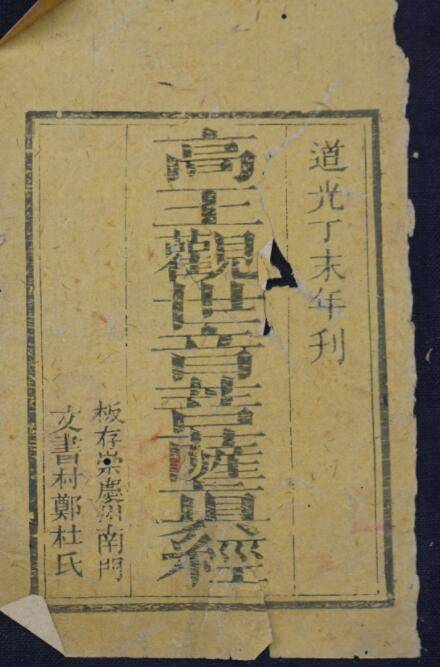 道光丁未年刊
高王觀世音菩薩真經
板存崇慶州南門
文書村鄭杜氏